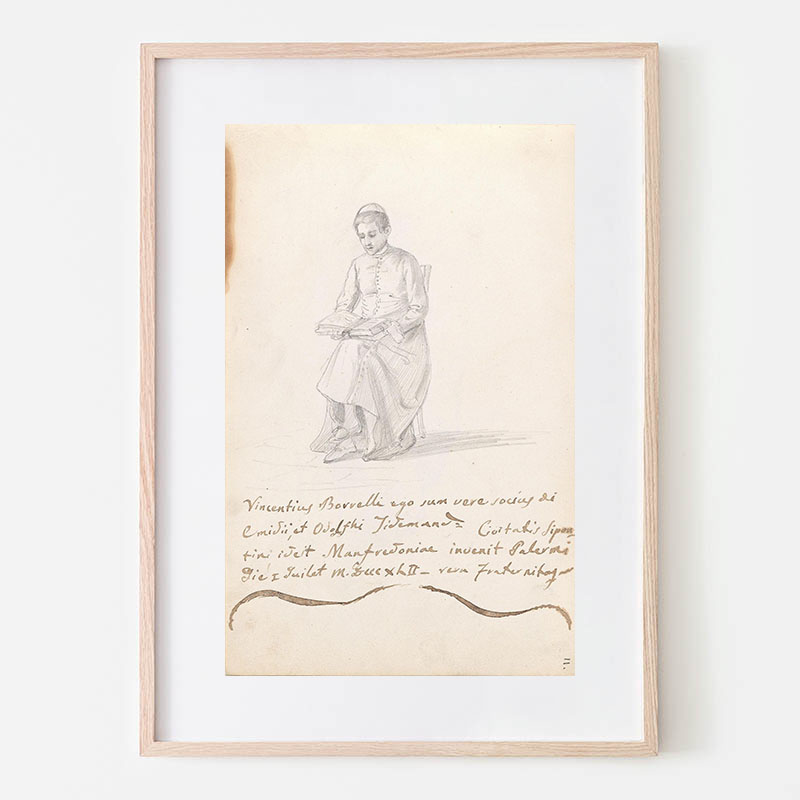 Vincentius Borrelli ego sum vere socius di
Emidii, et Odolfhi Tidemand= Civitatis Sipon=
tini id eit Manfredoniae invenit Palermi
Die I Juilet M.Dccc XLII – vera Fraternitas
11.